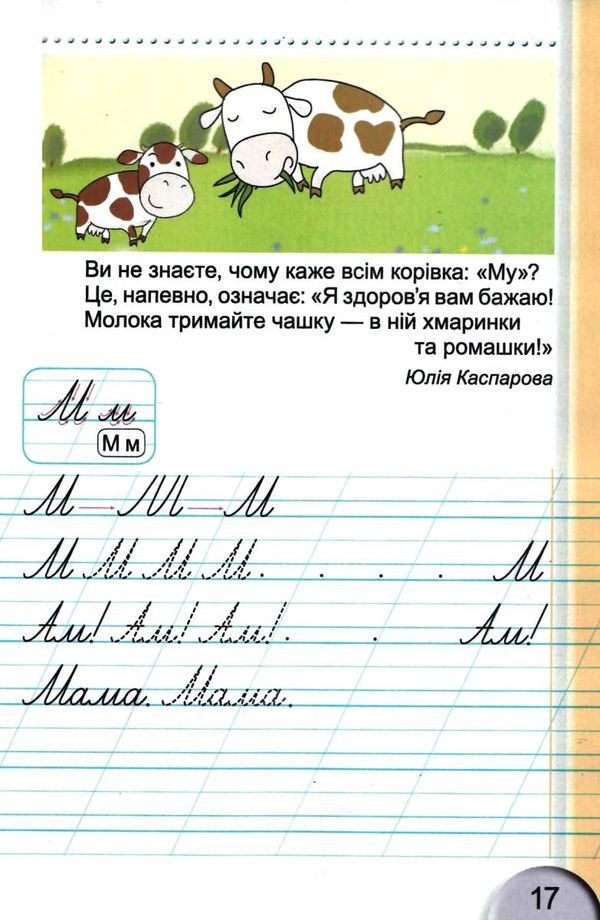 Ви не знаєте, чому каже всім корівка: «Му»?
Це, напевно, означає: «Я здоров’я вам бажаю!
Молока тримайте чашку — в ній хмаринки
та ромашки!»
Юлія Каспарова
М м
М м
М М М
М М М М М
Ам! Ам! Ам! Ам!
Мама. Мама.
17